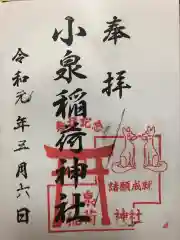 奉拝
小泉稲荷神社
令和元年五月六日
記念
諸願成就
神社